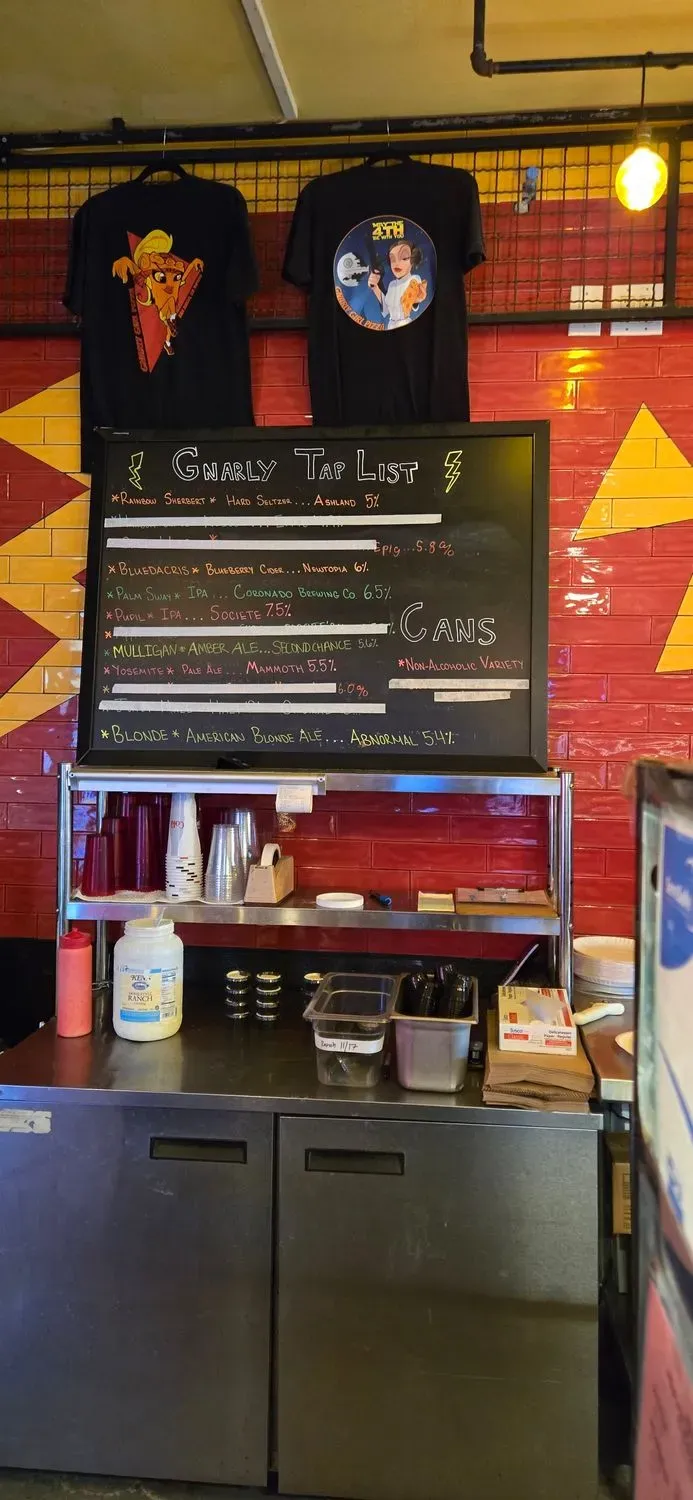 MAY THE
4TH
BE WITH YOU
GNARLY GIRL PIZZA
GNARLY TAP LIST
*RAINBOW SHERBERT * HARD SELTZER... ASHLAND 5%
EPIG...5.8%
*BLUEDACRIS * BLUEBERRY CIDER... NEWTOPIA 6%
*PALM SWAY * IPA... CORONADO BREWING CO. 6.5%
*PUPIL * IPA... SOCIETE 7.5%
*
*MULLIGAN * AMBER ALE... SECOND CHANCE 5.6%
*YOSEMITE * PALE ALE... MAMMOTH 5.5%
* 6.0%
*BLONDE * AMERICAN BLONDE ALE... ABNORMAL 5.4%
CANS
*NON-ALCOHOLIC VARIETY
KEN'S
RANCH
Ranch 11/17
Sysco
Classic